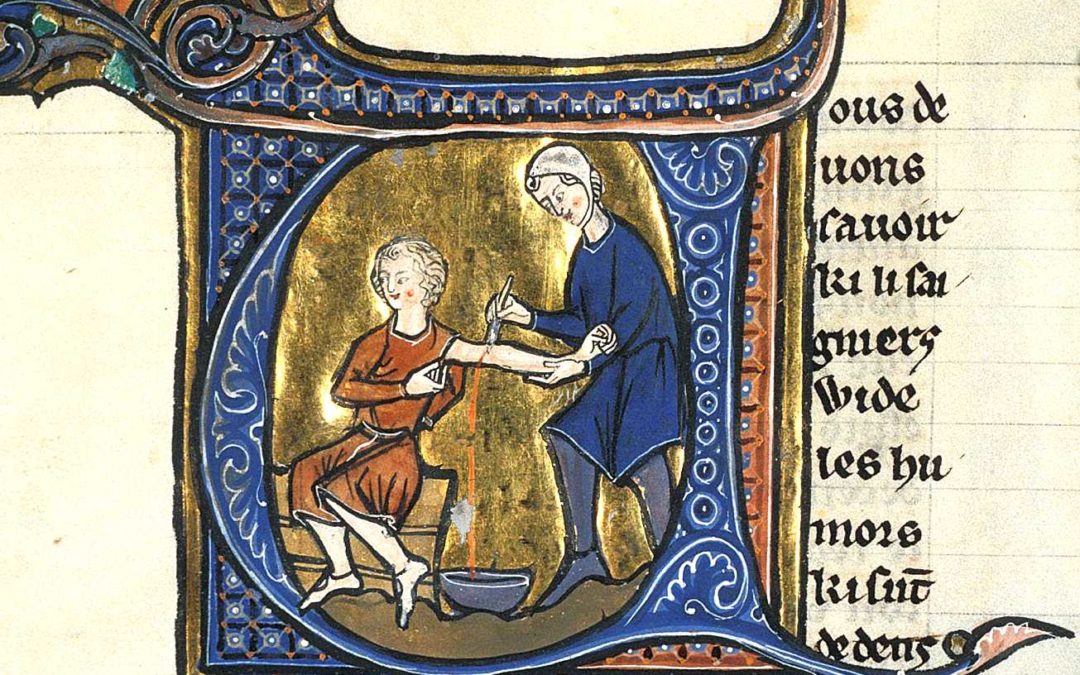 ous de
uons
sauoir
ki li sai
gniers
wide
les hu
mors
ki sūt
de dens